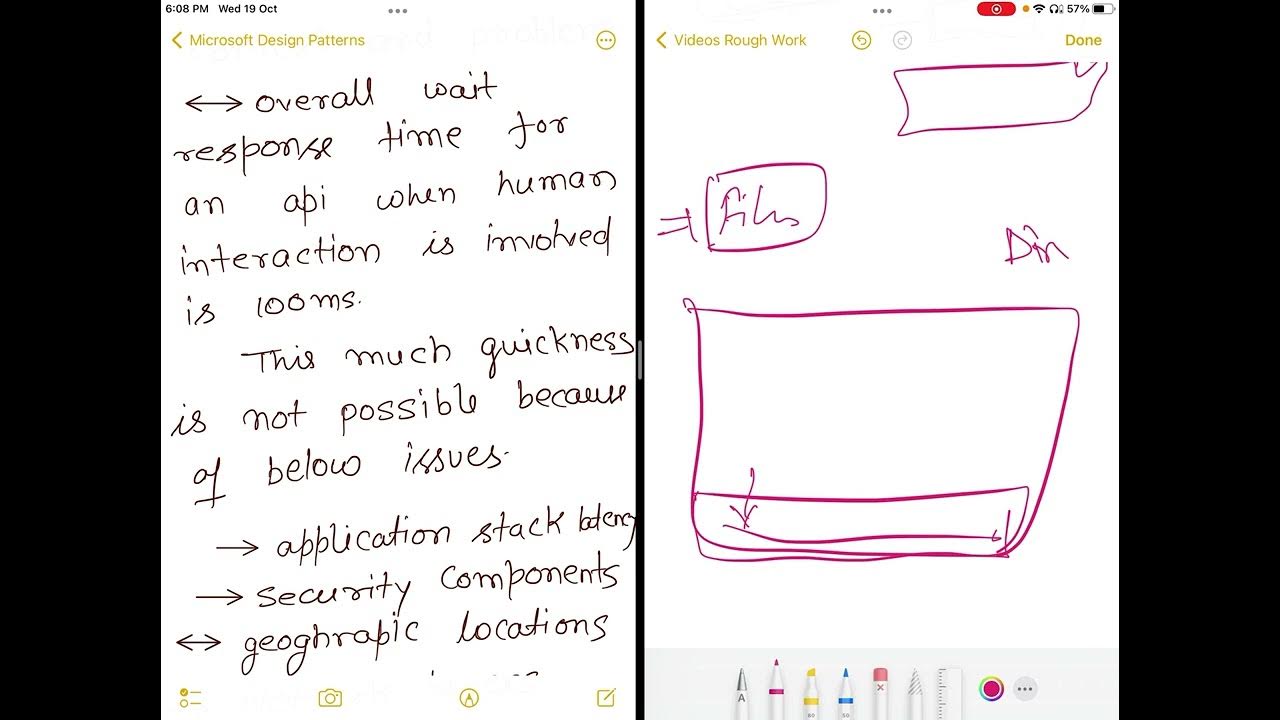 6:08 PM Wed 19 Oct
57%
Microsoft Design Patterns
Videos Rough Work
Done
↔ overall wait
response time for
an api when human
interaction is involved
is 100ms.
This much quickness
is not possible because
of below issues.
→ application stack latency
→ security components
↔ geoghrapic locations
Files
Din
A
80
50